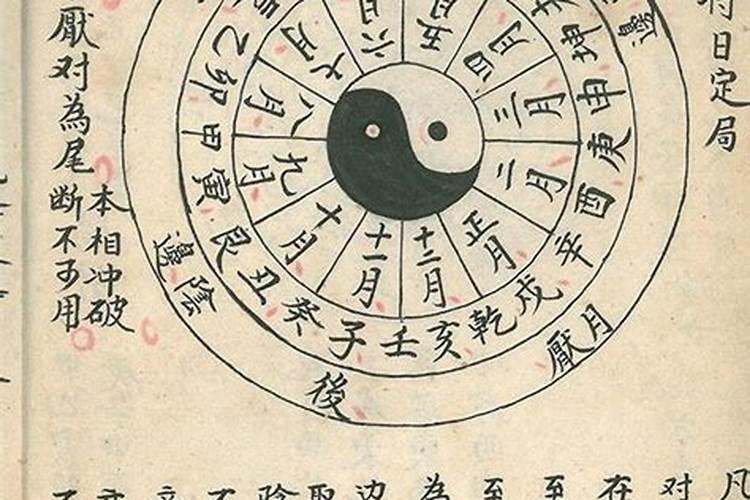 日定局
邊
坤
申
庚
酉
辛
戌
乾
亥
壬
子
癸
丑
艮
寅
甲
卯
乙
四月
三月
二月
正月
十二月
十一月
十月
九月
八月
七月
六
五
月厭
後
陰邊
厭对為尾
本相冲破
断不可用
对
在
至
至
為
边
取
陰
不